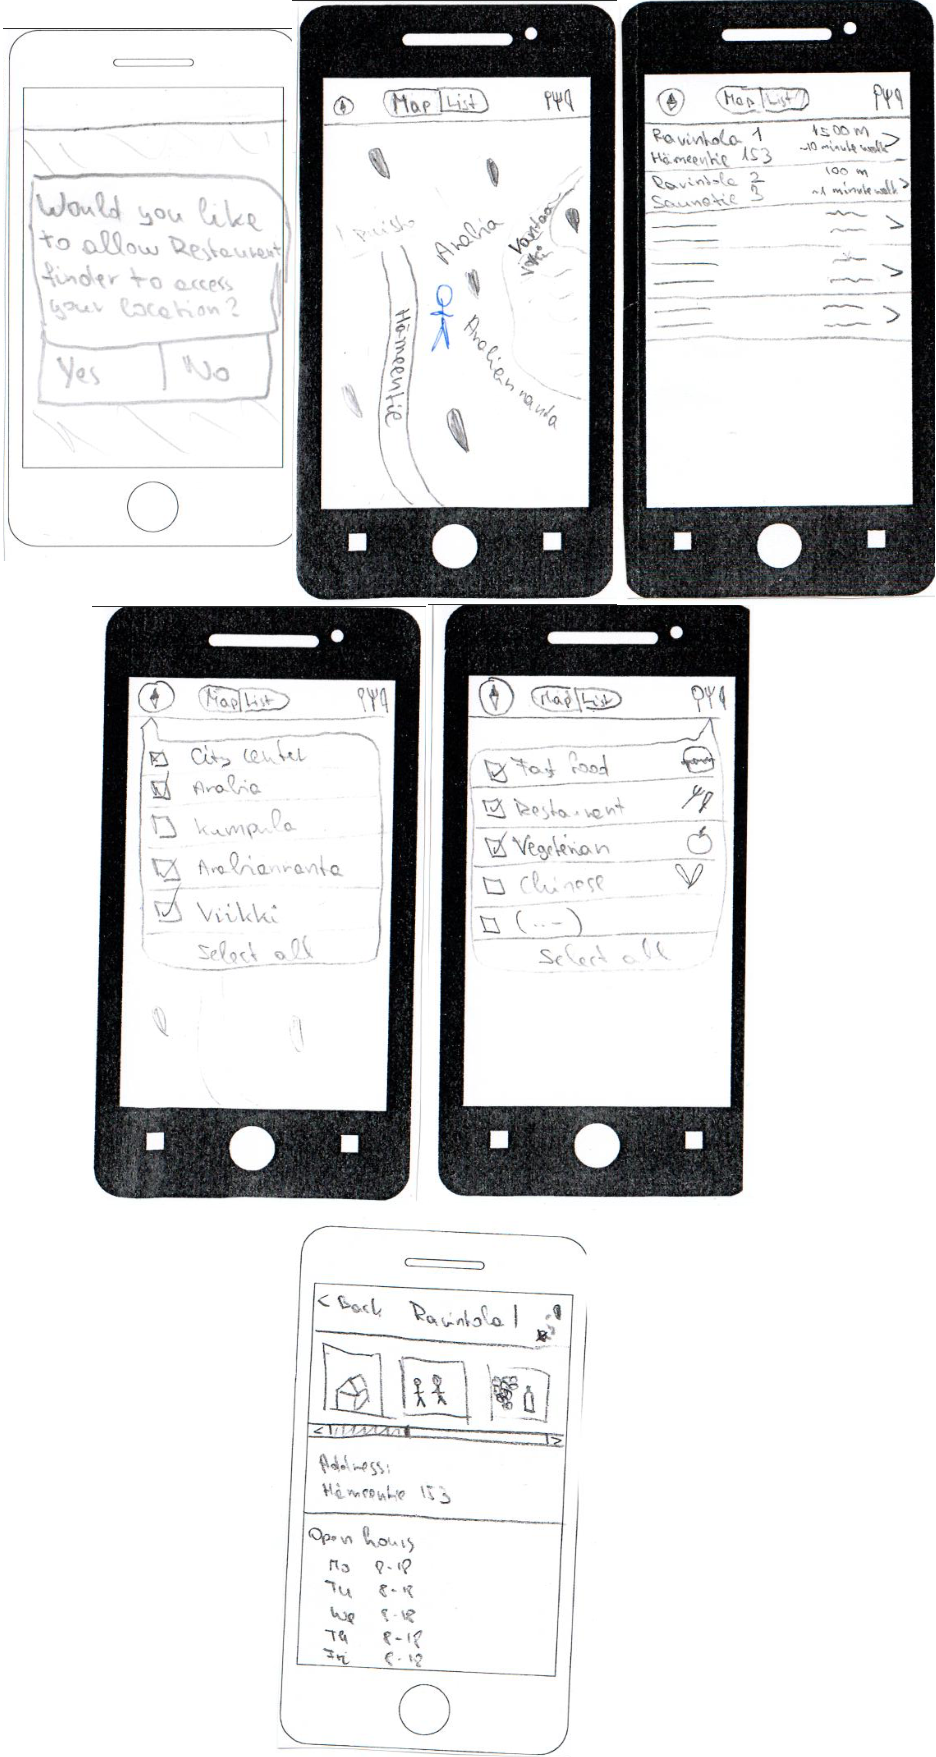 Would you like
to allow Restaurant
finder to access
your location?
Yes
No
Map
List
Arabia
Vantaa
Hämeentie
Arabianranta
Map
List
Ravintola 1
1500 m
Hämeentie 153
~10 minute walk
Ravintola 2
100 m
Saunatie 3
~1 minute walk
Map
List
City Center
Arabia
Kumpula
Arabianranta
Viikki
Select all
Map
List
Fast food
Restaurant
Vegeterian
Chinese
(...)
Select all
< Back
Ravintola 1
Address:
Hämeentie 153
Open hours
Mo 8-18
Tu 8-18
We 8-18
Th 8-18
Fri 8-18